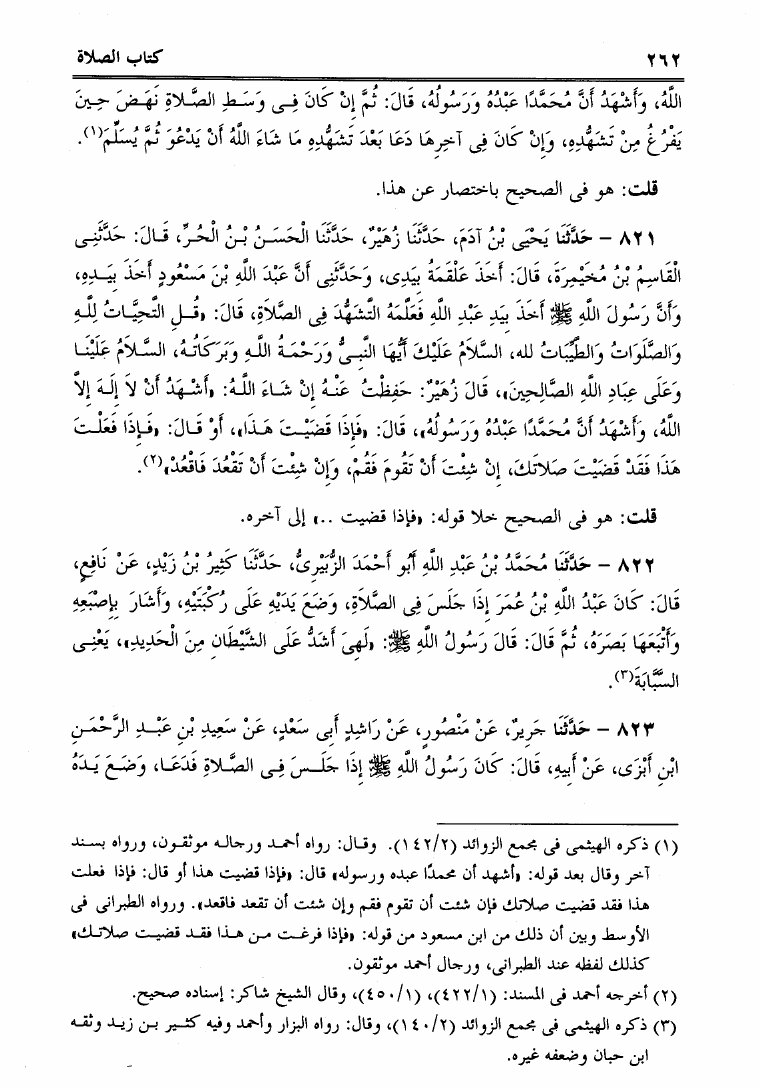 ٢٦٢ كتاب الصلاة
اللَّهُ، وَأَشْهَدُ أَنَّ مُحَمَّدًا عَبْدُهُ وَرَسُولُهُ، قَالَ: ثُمَّ إِنْ كَانَ فِى وَسَطِ الصَّلاةِ نَهَضَ حِينَ
يَفْرُغُ مِنْ تَشَهُّدِهِ، وَإِنْ كَانَ فِى آخِرِهَا دَعَا بَعْدَ تَشَهُّدِهِ مَا شَاءَ اللَّهُ أَنْ يَدْعُوَ ثُمَّ يُسَلِّمَ(١).
قلت: هو فى الصحيح باختصار عن هذا.
٨٢١ – حَدَّثَنَا يَحْيَى بْنُ آدَمَ، حَدَّثَنَا زُهَيْرٌ، حَدَّثَنَا الْحَسَنُ بْنُ الْحُرِّ، قَالَ: حَدَّثَنِى
الْقَاسِمُ بْنُ مُخَيْمِرَةَ، قَالَ: أَخَذَ عَلْقَمَةُ بِيَدِى، وَحَدَّثَنِى أَنَّ عَبْدَ اللَّهِ بْنَ مَسْعُودٍ أَخَذَ بِيَدِهِ،
وَأَنَّ رَسُولَ اللَّهِ ﷺ أَخَذَ بِيَدِ عَبْدِ اللَّهِ فَعَلَّمَهُ التَّشَهُّدَ فِى الصَّلاةِ، قَالَ: «قُلِ التَّحِيَّاتُ لِلَّهِ
وَالصَّلَوَاتُ وَالطَّيِّبَاتُ لله، السَّلامُ عَلَيْكَ أَيُّهَا النَّبِىُّ وَرَحْمَةُ اللَّهِ وَبَرَكَاتُهُ، السَّلامُ عَلَيْنَا
وَعَلَى عِبَادِ اللَّهِ الصَّالِحِينَ»، قَالَ زُهَيْرٌ: حَفِظْتُ عَنْهُ إِنْ شَاءَ اللَّهُ: «أَشْهَدُ أَنْ لاَ إِلَهَ إِلاَّ
اللَّهُ، وَأَشْهَدُ أَنَّ مُحَمَّدًا عَبْدُهُ وَرَسُولُهُ»، قَالَ: «فَإِذَا قَضَيْتَ هَذَا»، أَوْ قَالَ: «فَإِذَا فَعَلْتَ
هَذَا فَقَدْ قَضَيْتَ صَلاتَكَ، إِنْ شِئْتَ أَنْ تَقُومَ فَقُمْ، وَإِنْ شِئْتَ أَنْ تَقْعُدَ فَاقْعُدْ»(٢).
قلت: هو فى الصحيح خلا قوله: «فإذا قضيت ..» إلى آخره.
٨٢٢ – حَدَّثَنَا مُحَمَّدُ بْنُ عَبْدِ اللَّهِ أَبُو أَحْمَدَ الزُّبَيْرِىُّ، حَدَّثَنَا كَثِيرُ بْنُ زَيْدٍ، عَنْ نَافِعٍ،
قَالَ: كَانَ عَبْدُ اللَّهِ بْنُ عُمَرَ إِذَا جَلَسَ فِى الصَّلاةِ، وَضَعَ يَدَيْهِ عَلَى رُكْبَتَيْهِ، وَأَشَارَ بِإِصْبَعِهِ
وَأَتْبَعَهَا بَصَرَهُ، ثُمَّ قَالَ: قَالَ رَسُولُ اللَّهِ ﷺ: «لَهِىَ أَشَدُّ عَلَى الشَّيْطَانِ مِنَ الْحَدِيدِ»، يَعْنِى
السَّبَّابَةَ(٣).
٨٢٣ – حَدَّثَنَا جَرِيرٌ، عَنْ مَنْصُورٍ، عَنْ رَاشِدٍ أَبِى سَعْدٍ، عَنْ سَعِيدِ بْنِ عَبْدِ الرَّحْمَنِ
ابْنِ أَبْزَى، عَنْ أَبِيهِ، قَالَ: كَانَ رَسُولُ اللَّهِ ﷺ إِذَا جَلَسَ فِى الصَّلاةِ فَدَعَا، وَضَعَ يَدَهُ
(١) ذكره الهيثمى فى مجمع الزوائد (١٤٢/٢). وقال: رواه أحمد ورجاله موثقون، ورواه بسند
آخر وقال بعد قوله: «أشهد أن محمدًا عبده ورسوله» قال: «فإذا قضيت هذا أو قال: فإذا فعلت
هذا فقد قضيت صلاتك فإن شئت أن تقوم فقم وإن شئت أن تقعد فاقعد». ورواه الطبرانى فى
الأوسط وبين أن ذلك من ابن مسعود من قوله: «فإذا فرغت من هذا فقد قضيت صلاتك»
كذلك لفظه عند الطبرانى، ورجال أحمد موثقون.
(٢) أخرجه أحمد فى المسند: (٤٢٢/١)، (٤٥٠/١)، وقال الشيخ شاكر: إسناده صحيح.
(٣) ذكره الهيثمى فى مجمع الزوائد (١٤٠/٢)، وقال: رواه البزار وأحمد وفيه كثير بن زيد وثقه
ابن حبان وضعفه غيره.